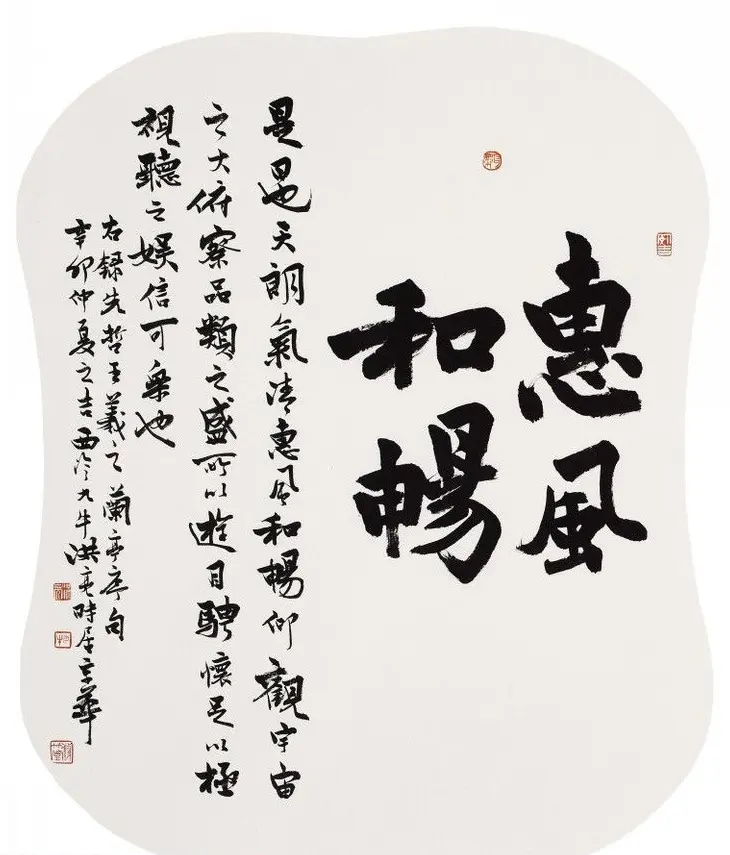 惠風
和暢
是日也天朗氣清惠風和暢仰觀宇宙
之大俯察品類之盛所以遊目騁懷足以極
視聽之娛信可樂也
右録先哲王羲之蘭亭序句
辛卯仲夏之吉西泠九牛洪亮時居京華